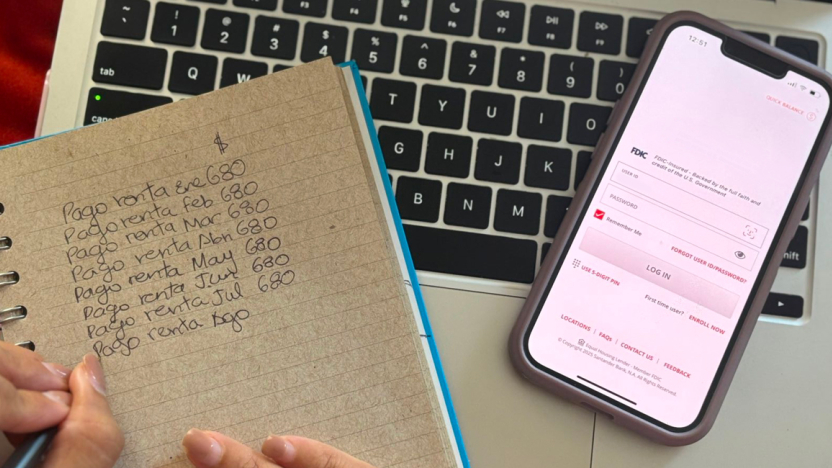 $
Pago renta ene 680
Pago renta feb 680
Pago renta Mar 680
Pago renta Abr 680
Pago renta May 680
Pago renta Jun 680
Pago renta Jul 680
Pago renta Ago
12:51
QUICK BALANCE
FDIC FDIC-Insured - Backed by the full faith and
credit of the U.S. Government
USER ID
PASSWORD
Remember Me
FORGOT USER ID/PASSWORD?
LOG IN
USE 5-DIGIT PIN
First time user? ENROLL NOW
LOCATIONS | FAQs | CONTACT US | FEEDBACK
Equal Housing Lender - Member FDIC
© Copyright 2025 Santander Bank, N.A. All Rights Reserved.
~ ! @ # $ % ^ & * (
` 1 2 3 4 5 6 7 8 9 0
F7 F8 F9
tab Q W
T Y U I O
caps
G H J K
B N M
shift